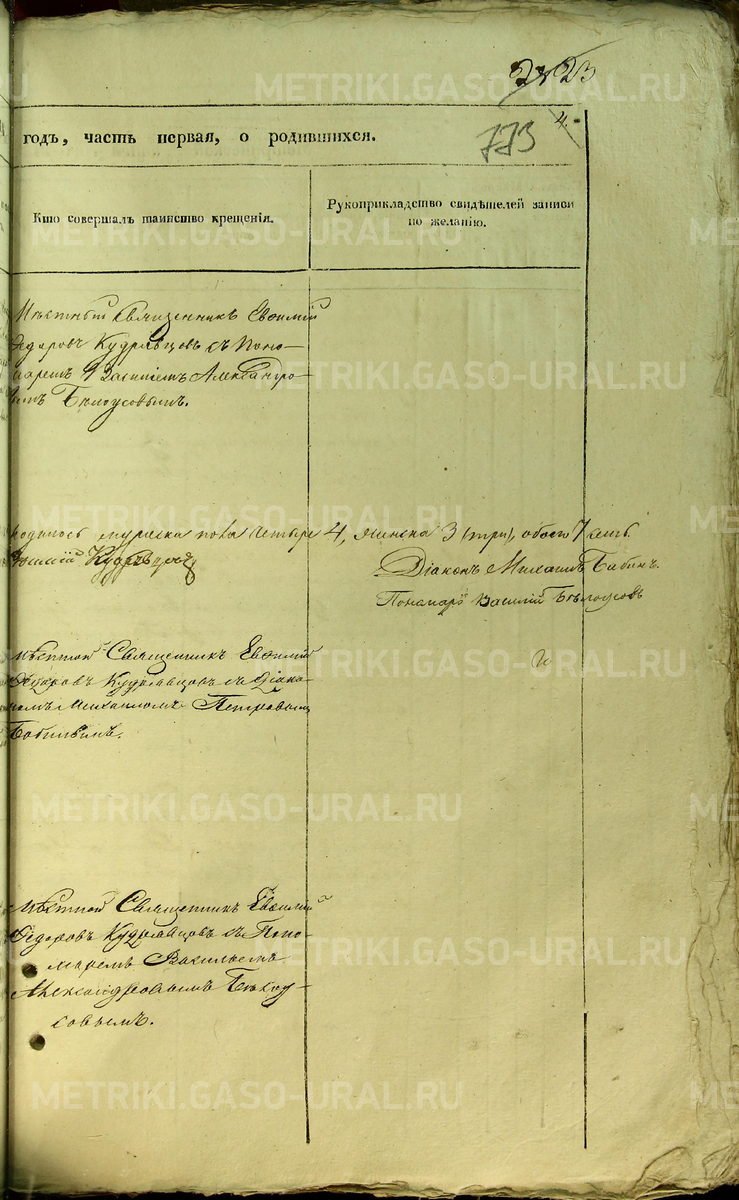 23
годъ, часть первая, о родившихся.
773
4.
Кто совершалъ таинство крещенія.
Рукоприкладство свидѣтелей записи
по желанію.
Мѣстный Священникъ Евѳимій
Федоровъ Кудрявцовъ съ Поно-
маремъ Василіемъ Александро-
вымъ Бѣлоусовымъ.
родилось мужеска пола четыре 4, женска 3 (три), обоего 7 семь.
Кудрявцовъ
Діаконъ Михаилъ Бабинъ.
Пономарь Василій Бѣлоусовъ
Мѣстной Священникъ Евѳимій
Федоровъ Кудрявцовъ съ Діако-
номъ Михаиломъ Петровымъ
Бабинымъ.
Мѣстной Священникъ Евѳимій
Федоровъ Кудрявцовъ съ Поно-
маремъ Васильемъ
Александровымъ Бѣлоу-
совымъ.
METRIKI.GASO-URAL.RU